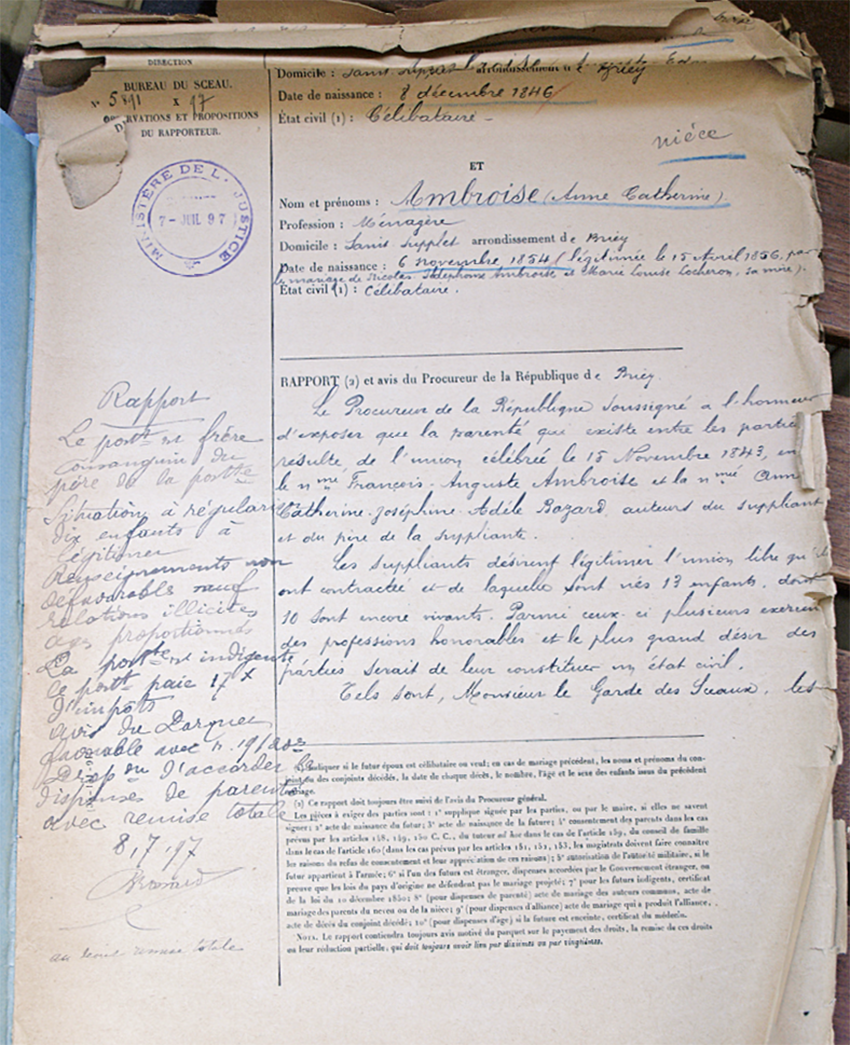 DIRECTION
BUREAU DU SCEAU.
N° 5891 X 97
OBSERVATIONS ET PROPOSITIONS
DU RAPPORTEUR.
MINISTÈRE DE L. JUSTICE
7 - JUIL 97
Domicile : arrondissement d Briey
Date de naissance : 8 décembre 1846
État civil (1) : Célibataire -
nièce
ET
Nom et prénoms : Ambroise (Anne Catherine)
Profession : Ménagère
Domicile : Sanis Supplet arrondissement de Briey
Date de naissance : 6 novembre 1854 (légitimée le 15 Avril 1856, par
le mariage de Nicolas Ambroise et Marie Louise Locheron, sa mère).
État civil (1) : Célibataire.
RAPPORT (2) et avis du Procureur de la République de Briey.
Le Procureur de la République soussigné a l'honneur
d'exposer que la parenté qui existe entre les parties
résulte de l'union célébrée le 15 Novembre 1843, en
le n mé François-Auguste Ambroise et la n mé Ann
Catherine-Joséphine-Adèle Bazard, auteurs du suppliant
et du père de la suppliante.
Les suppliants désirent légitimer l'union libre qu'ils
ont contractée et de laquelle sont nés 13 enfants, dont
10 sont encore vivants. Parmi ceux-ci plusieurs exercen
des professions honorables et le plus grand désir des
parties serait de leur constituer un état civil.
Tels sont, Monsieur le Garde des Sceaux, les
Rapport
Le postt est frère
consanguin du
père de la postte
Situation à régulari
dix enfants à
légitimer
Renseignements non
défavorable sauf
relations illicites
ages proportionnés
La postte est indigente
le postt paie 17 x
d'impôts
avis du Parquet
favorable avec
Prop on d'accorder les
dispenses de parenté
avec remise totale
8, 7, 97
au sceau remise totale
(1) Indiquer si le futur époux est célibataire ou veuf; en cas de mariage précédent, les noms et prénoms du con-
joint ou des conjoints décédés, la date de chaque décès, le nombre, l'âge et le sexe des enfants issus du précédent
mariage.
(2) Ce rapport doit toujours être suivi de l'avis du Procureur général.
Les pièces à exiger des parties sont : 1° supplique signée par les parties, ou par le maire, si elles ne savent
signer; 2° acte de naissance du futur; 3° acte de naissance de la future; 4° consentement des parents dans les cas
prévus par les articles 148, 149, 150 C. C., du tuteur ad hoc dans le cas de l'article 159, du conseil de famille
dans le cas de l'article 160 (dans les cas prévus par les articles 151, 152, 153, les magistrats doivent faire connaître
les raisons du refus de consentement et leur appréciation de ces raisons); 5° autorisation de l'autorité militaire, si le
futur appartient à l'armée; 6° si l'un des futurs est étranger, dispenses accordées par le Gouvernement étranger, ou
preuve que les lois du pays d'origine ne défendent pas le mariage projeté; 7° pour les futurs indigents, certificat
de la loi du 10 décembre 1850; 8° (pour dispenses de parenté) acte de mariage des auteurs communs, acte de
mariage des parents du neveu ou de la nièce; 9° (pour dispenses d'alliance) acte de mariage qui a produit l'alliance,
acte de décès du conjoint décédé; 10° (pour dispenses d'âge) si la future est enceinte, certificat du médecin.
NOTA. Le rapport contiendra toujours avis motivé du parquet sur le payement des droits, la remise de ces droits
ou leur réduction partielle, qui doit toujours avoir lieu par dixièmes ou par vingtièmes.